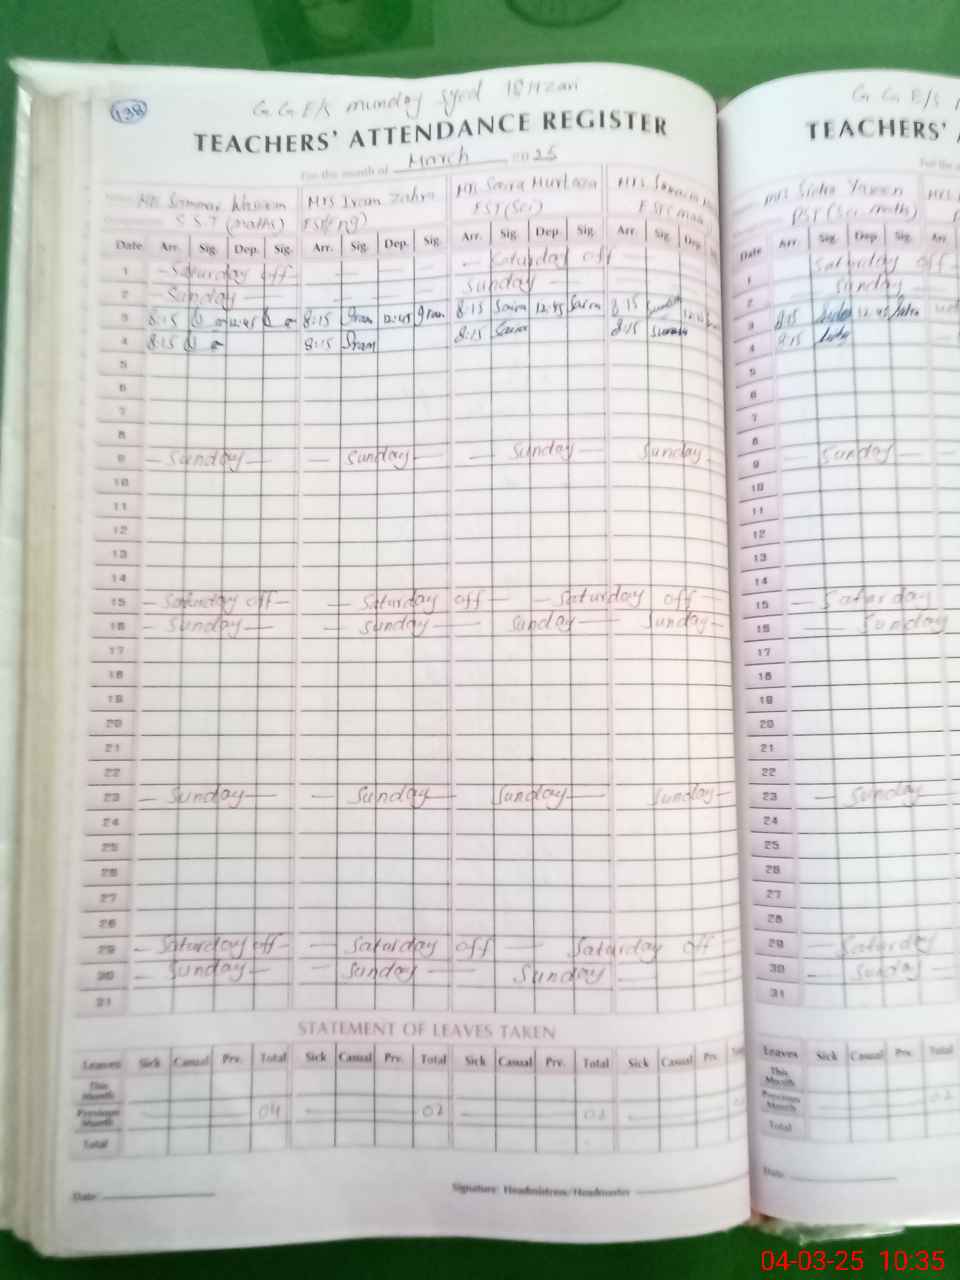 138
G.G.E/S munday syed
TEACHERS' ATTENDANCE REGISTER
For the month of March 2025
Mrs Iram Zahra Mrs Saira Murtaza
S.S.T (maths) EST(Eng) EST(Sci)
Date Arr. Sig. Dep. Sig. Arr. Sig. Dep. Sig. Arr. Sig. Dep. Sig. Arr. Sig. Dep.
1 — Saturday off — — — — — Saturday off — —
2 — Sunday — — — — Sunday —
3 8:15 12:45 8:15 Iram 12:45 Iram 8:15 Saira 12:45 Saira 8:15
4 8:15 8:15 Iram 8:15 Saira 8:15
5
6
7
8
9 — Sunday — — Sunday — — Sunday — Sunday —
10
11
12
13
14
15 — Saturday off — — Saturday off — — Saturday off —
16 — Sunday — — Sunday — Sunday — Sunday —
17
18
19
20
21
22
23 — Sunday — — Sunday — Sunday — Sunday —
24
25
26
27
28
29 — Saturday off — — Saturday off — Saturday off —
30 — Sunday — — Sunday — Sunday
31
STATEMENT OF LEAVES TAKEN
Leaves Sick Casual Prv. Total Sick Casual Prv. Total Sick Casual Prv. Total Sick Casual Prv.
This Month
Previous Month 04 02 02
Total
Date: Signature: Headmistress/Headmaster
G.G E/S
TEACHERS'
For the
Date Arr. Sig. Dep. Sig. Arr.
1 Saturday off
2 Sunday
3 8:15 12:45
4 8:15
5
6
7
8
9 Sunday —
10
11
12
13
14
15 — Saturday
16 — Sunday
17
18
19
20
21
22
23 — Sunday
24
25
26
27
28
29 Saturday
30 — Sunday —
31
Leaves Sick Casual Prv. Total
This Month
Previous Month 02
Total
Date:
04-03-25 10:35